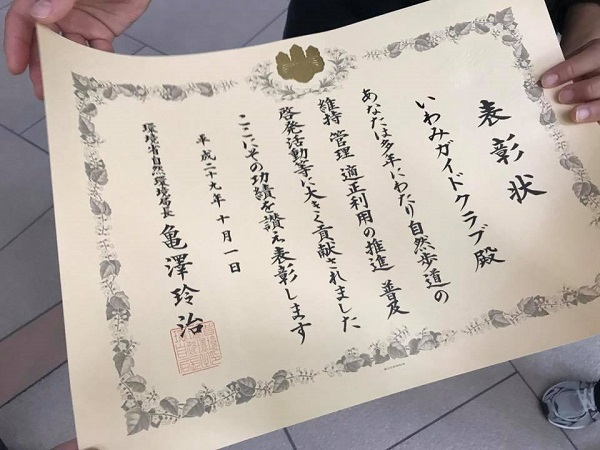 表彰状
いわみガイドクラブ殿
あなたは多年にわたり自然歩道の
維持 管理 適正利用の推進 普及
啓発活動等に大きく貢献されました
ここにその功績を讃え表彰します
平成二十九年十月一日
環境省自然環境局長 亀澤玲治